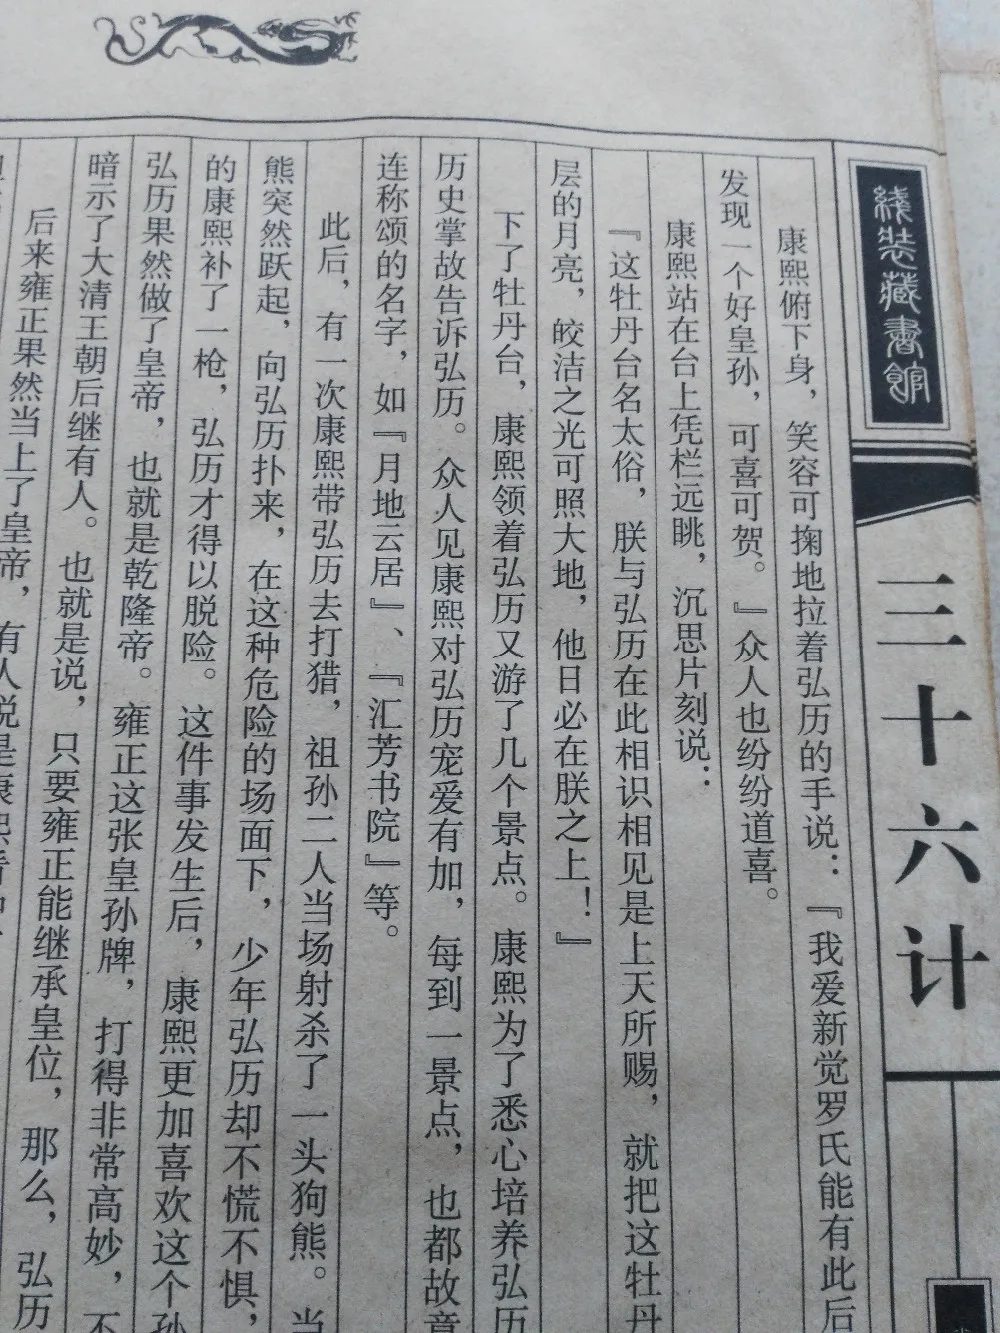 线装藏書館
三十六计
康熙俯下身，笑容可掬地拉着弘历的手说：『我爱新觉罗氏能有此后
发现一个好皇孙，可喜可贺。』众人也纷纷道喜。
康熙站在台上凭栏远眺，沉思片刻说：
『这牡丹台名太俗，朕与弘历在此相识相见是上天所赐，就把这牡丹
层的月亮，皎洁之光可照大地，他日必在朕之上！』
下了牡丹台，康熙领着弘历又游了几个景点。康熙为了悉心培养弘历
历史掌故告诉弘历。众人见康熙对弘历宠爱有加，每到一景点，也都故意
连称颂的名字，如『月地云居』、『汇芳书院』等。
此后，有一次康熙带弘历去打猎，祖孙二人当场射杀了一头狗熊。当
熊突然跃起，向弘历扑来，在这种危险的场面下，少年弘历却不慌不惧，
的康熙补了一枪，弘历才得以脱险。这件事发生后，康熙更加喜欢这个孙
弘历果然做了皇帝，也就是乾隆帝。雍正这张皇孙牌，打得非常高妙，不
暗示了大清王朝后继有人。也就是说，只要雍正能继承皇位，那么，弘历
后来雍正果然当上了皇帝，有人说是康熙